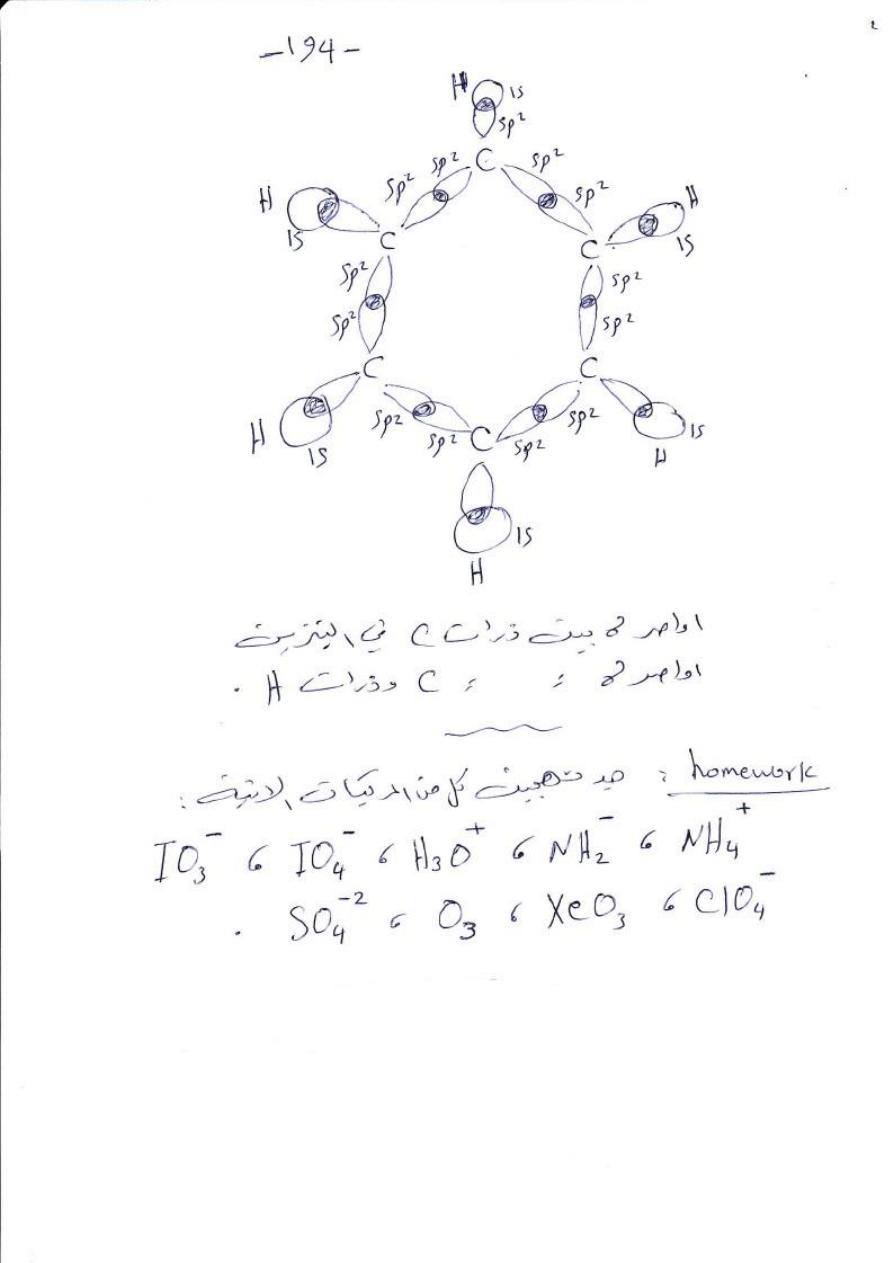 -194-
H 1s
sp² sp² C sp² sp²
sp² sp²
H 1s C C H 1s
sp² sp²
sp² sp²
C C
H 1s sp² sp² C sp² sp² 1s H
1s
H
اواصر σ بين ذرات C في البنزين
اواصر σ = = C وذرات H .
homework : جد تهجين كل من المركبات الاتية :
NH₄⁺ ، NH₂⁻ ، H₃O⁺ ، IO₄⁻ ، IO₃⁻
ClO₄⁻ ، XeO₃ ، O₃ ، SO₄⁻² .